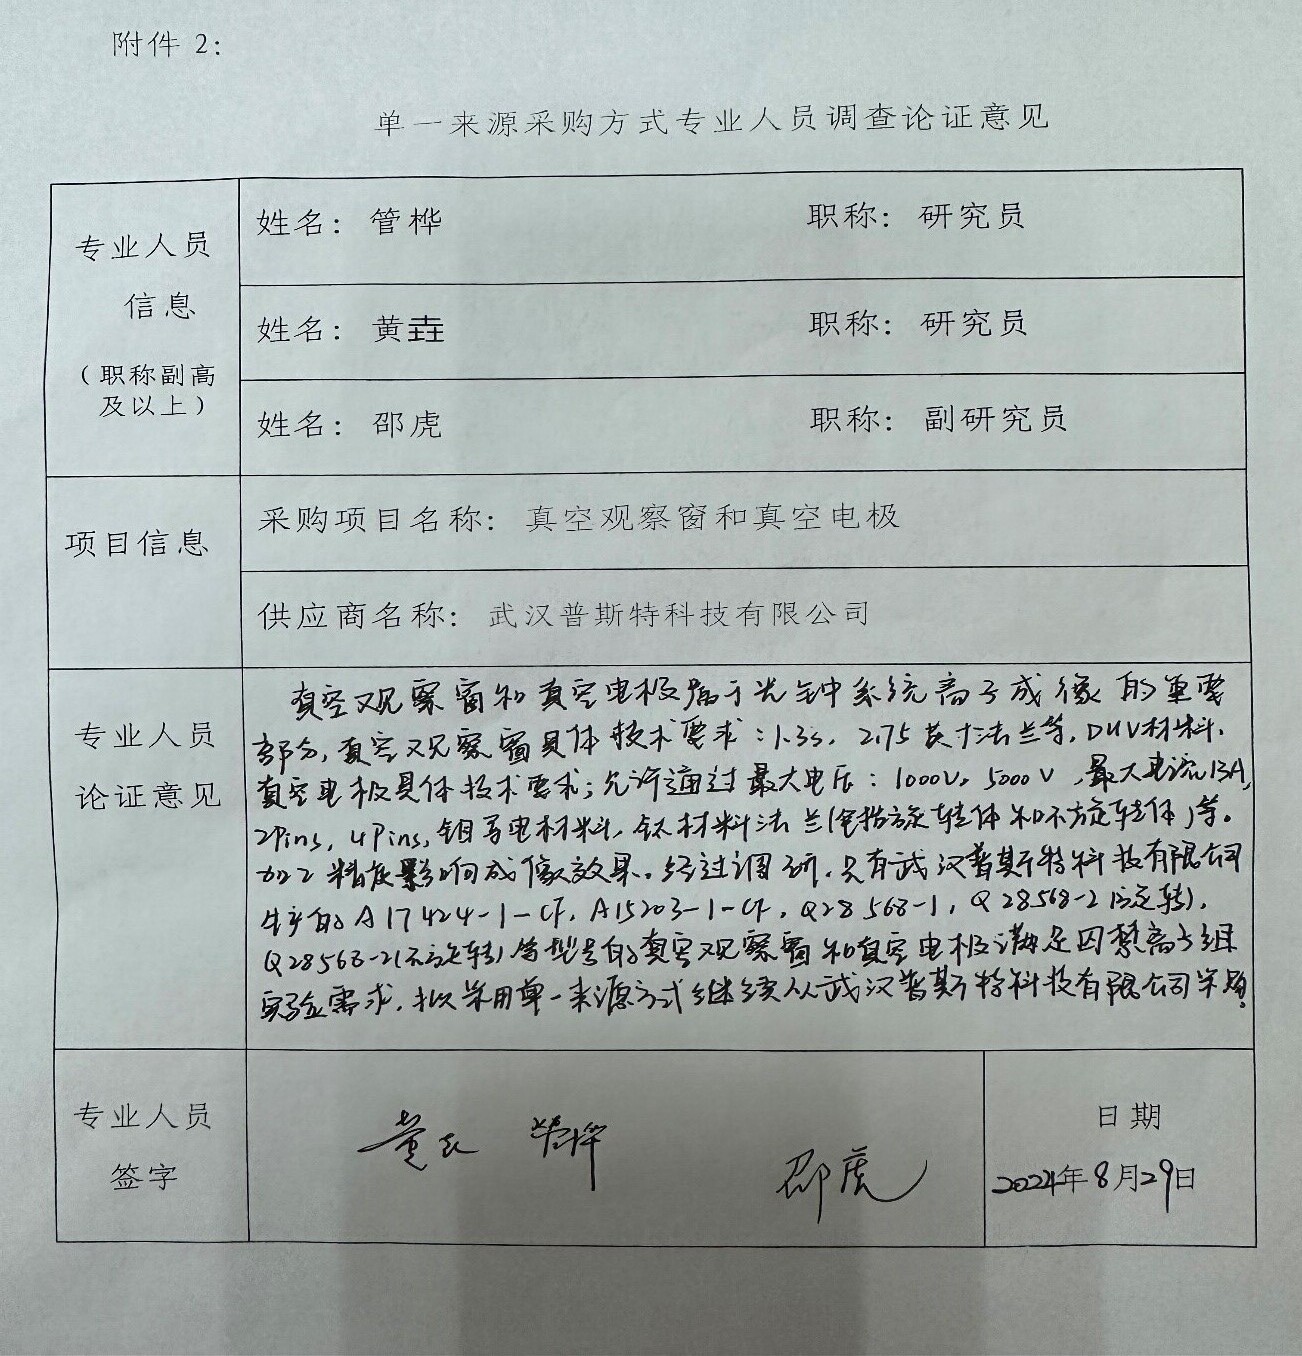 附件 2：
单一来源采购方式专业人员调查论证意见
专业人员
信息
（职称副高
及以上）
姓名：管桦 职称：研究员
姓名：黄垚 职称：研究员
姓名：邵虎 职称：副研究员
项目信息
采购项目名称：真空观察窗和真空电极
供应商名称：武汉普斯特科技有限公司
专业人员
论证意见
真空观察窗和真空电极属于光钟系统离子成像的重要
部分，真空观察窗具体技术要求：1.33，2.75英寸法兰等，DUV材料。
真空电极具体技术要求；允许通过最大电压：1000V，5000V，最大电流13A，
2Pins，4Pins，钼导电材料，钛材料法兰（包括旋转体和不旋转体）等。
加工精度影响成像效果。经过调研，只有武汉普斯特科技有限公司
生产的A17424-1-CF，A15203-1-CF，Q28568-1，Q28568-2（旋转），
Q28568-2（不旋转）等型号的真空观察窗和真空电极满足囚禁离子组
实验需求，拟采用单一来源方式继续从武汉普斯特科技有限公司采购。
专业人员
签字
黄垚 管桦
邵虎
日期
2024年8月29日